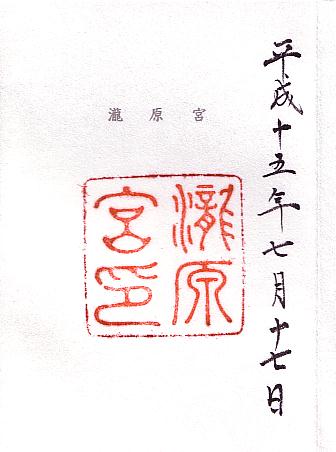 平成十五年七月十七日
瀧原宮
瀧原
宮印